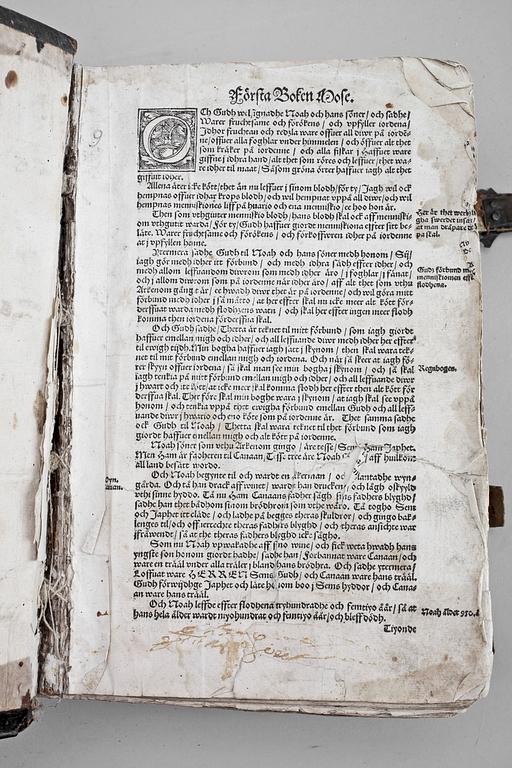 Första Boken Mose.
OCh Gudh welsignadhe Noah och hans söner / och sadhe /
Warer fruchtsame och förökens / och vpfyller iordena /
Idhor fruchtan och redzla ware offuer all diwr på iordē-
ne / offuer alla foghlar vnder himmelen / och offuer alt thet
som kräker på iordenne / och alla fiskar j Haffuet ware
giffne j idhra hand / alt thet som röres och leffuer / thet wa-
re idher til maat / Såsom gröna örter haffuer iagh alt thet
giffuit idher.
Allena äter icke kött / thet än nu leffuer j sinom blodh / för ty / Jagh wil ock
hempnas offuer idhar kropz blodh / och wil hempnat vppå all diwr / och wil
hempnas menniskiones liff på hwario och ena menniskio / ee hoo hon är.
Then som vthgiuter menniskio blodh / hans blodh skal ock aff menniskio
om vthgutit warda / För ty / Gudh haffuer giordt menniskiona effter sitt be-
läte. Warer fruchtsame och förökens / och förkoffren idher på iordenne
at j vpfyllen henne.
Ytermera sadhe Gudh til Noah och hans söner medh honom / Sij /
iagh gör medh idher itt förbund / och medh idhra sädh effter idher / och
medh allom leffuandom diwrom som medh idher äro / j foghlar / j fänat /
och j allom diwrom som på iordenne när idher äro / aff alt thet som vthu
Arkenom gång it är / ehwadh diwr thet är på iordenne / och wil göra mitt
förbund medh idher j så motto / at her effter skal nu icke meer alt kött för-
derffuat warda medh flodhzens watn / och skal her effter ingen meer flodh
komma then iordena förderffua skal.
Och Gudh sadhe / Thetta är teknet til mitt förbund / som iagh giordt
haffuer emellan migh och idher / och all leffuande diwr medh idher her effter
til ewigh tijdh. Min bogha haffuer iagh satt j skynom / then skal wara tek-
net til mitt förbund emellan migh och iordena. Och när så skeer at iagh fö-
rer skyyn offuer iordena / så skal man see min bogha j skynom / och så skal
iagh tenkia på mitt förbund emellan migh och idher / och all leffuande diwr
j hwart och itt kött / at icke meer skal komma flodh her effter then alt kött för-
derffua skal. Ther före skal min boghe wara j skynom / at iagh skal see vppå
honom / och tenkia vppå thet ewigha förbund emellan Gudh och all leff-
uande diwr j hwario och eno köte som på iordenne är. Thet samma sadhe
ock Gudh til Noah / Thetta skal wara teknet til thet förbund som iagh
giordt haffuer emellan migh och alt kött på iordenne.
Noah söner som vthu Arkenom gingo / äre tesse / Sem Ham Japhet.
Men Ham är fadheren til Canaan. Tesse tree äre Noah aff huilkom
all land besatt wordo.
Och Noah begynte til och wardt en åkerman / och plantadhe wyn-
gårda. Och tå han drack aff winet / wardt han drucken / och lågh oskyld
vthi sinne hyddo. Tå nu Ham Canaans fadher sågh sins fadhers blyghd /
sadhe han thet bådhom sinom brödhrom som vthe wåro. Tå togho Sem
och Japhet itt cläde / och ladhe på begges theras skuldror / och gingo bak-
lenges til / och offuertechte theras fadhers blyghd / och theras ansichte war
ifråwendt / så at the theras fadhers blyghd icke sågho.
Som nu Noah vpwaknadhe aff sino wine / och fick weta hwadh hans
yngste son honom giordt hadhe / sadhe han / Forbannat ware Canaan / och
ware en trääl vnder alla träler / bland hans brödhra. Och sadhe ytermera /
Loffuat ware HERREN Sems Gudh / och Canaan ware hans trääl.
Gudh förwijdhge Japhet och låte honom boo j Sems hyddor / och Canaan
an ware hans trääl.
Och Noah leffde effter flodhena tryhundradhe och femtiyo åår / så at
hans hela ålder wardt niyohundrat och femtiyo åår / och bleff dödh.
Tiyonde
Gudz förbund mz
menniskiomen effter
flodhena.
Regnboge.
Noah ålder 950.å